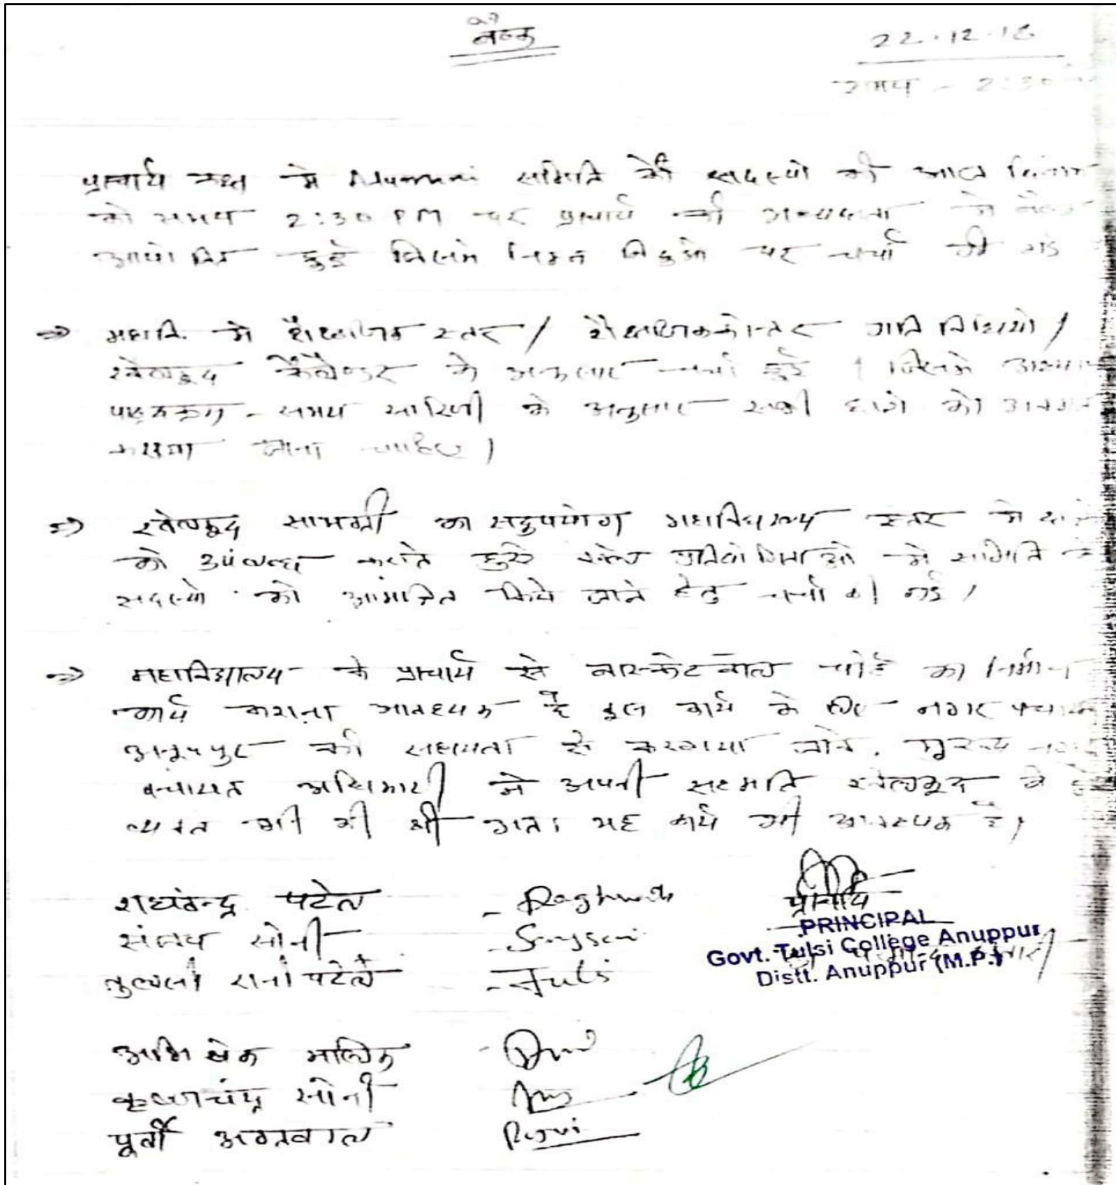 बैठक
22.12.18
समय - 2:30
प्राचार्य कक्ष मे Alumni समिति के सदस्यो की आज दिनांक
को समय 2:30 PM पर प्राचार्य की अध्यक्षता मे बैठक
आयोजित हुई जिसमे निम्न बिंदुओ पर चर्चा की गई
⇒ महावि. मे शैक्षणिक स्तर / शैक्षणिकेत्तर गति विधियो /
खेलकूद कैलेण्डर के अनुसार चर्चा हुई । जिसमे
पाठ्यक्रम, समय सारिणी के अनुसार सभी छात्रो को अवगत
कराया जाना चाहिए ।
⇒ खेलकूद सामग्री का सदुपयोग महाविद्यालय स्तर मे
को उपलब्ध कराते हुये प्रतियोगिताओ मे समिति के
सदस्यो को आमंत्रित किये जाने हेतु चर्चा की गई ।
⇒ महाविद्यालय के प्राचार्य से बास्केटबाल कोर्ट का निर्माण
कार्य कराना आवश्यक है इस कार्य के लिए नगर पंचायत
अनूपपुर की सहायता से करवाया जावे, मुख्य नगर
पंचायत अधिकारी ने अपनी सहमति खेलकूद के
व्यक्त की थी अतः यह कार्य भी आवश्यक है।
राघवेन्द्र पटेल - Raghvendr
संजय सोनी - Sanjsoni
तुलसी रानी पटेल - Tulsi
प्राचार्य
PRINCIPAL
Govt. Tulsi College Anuppur
Distt. Anuppur (M.P.)
अभिषेक मालिक
कृष्णचंद्र सोनी
पूर्वी अग्रवाल Purvi